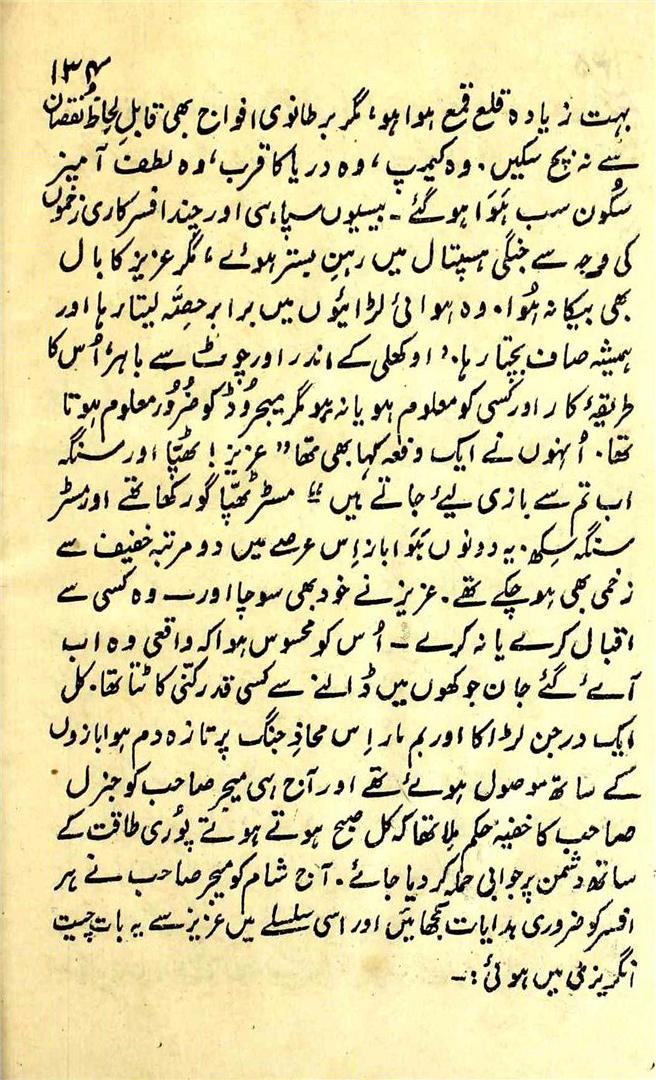 ۱۳۴
بہت زیادہ قلع قمع ہوا ہو، مگر برطانوی افواج بھی قابلِ لحاظ نقصان
سے نہ بچ سکیں۔ وہ کیمپ، وہ دریا کا قرب، وہ لطف آمیز
سکُون سب ہَوَا ہو گئے۔ بیسیوں سپاہی اور چند افسر کاری زخموں
کی وجہ سے جنگی ہسپتال میں رہنِ بستر ہوئے، مگر عزیز کا بال
بھی بیکا نہ ہُوا۔ وہ ہوائی لڑائیوں میں برابر حصّہ لیتا رہا اور
ہمیشہ صاف بچتا رہا۔ "اوکھلی کے اندر اور چوٹ سے باہر" اُس کا
طریقۂ کار اور کسی کو معلوم ہو یا نہ ہو مگر میجر وُڈ کو ضُرور معلوم ہوتا
تھا۔ اُنہوں نے ایک دفعہ کہا بھی تھا "عزیز! تھپّا اور سنگھ
اب تم سے بازی لیے جاتے ہیں" مسٹر تھپّا گورکھا تھے اور مسٹر
سنگھ سِکھ۔ یہ دونوں ہَوَا باز اِس عرصے میں دو مرتبہ خفیف سے
زخمی بھی ہو چکے تھے۔ عزیز نے خود بھی سوچا اور — وہ کسی سے
اقبال کرے یا نہ کرے — اُس کو محسوس ہوا کہ واقعی وہ اب
آئے گئے جان جوکھوں میں ڈالنے سے کسی قدر کنّی کاٹتا تھا۔ کل
ایک درجن لڑاکا اور بم بار اِس محاذِ جنگ پر تازہ دم ہوابازوں
کے ساتھ موصول ہوئے تھے اور آج ہی میجر صاحب کو جنرل
صاحب کا خفیہ حکم مِلا تھا کہ کل صبح ہوتے ہوتے پُوری طاقت کے
ساتھ دشمن پر جوابی حملہ کر دیا جائے۔ آج شام کو میجر صاحب نے ہر
افسر کو ضروری ہدایات سمجھائیں اور اسی سلسلے میں عزیز سے یہ بات چیت
انگریزی میں ہوئی:۔